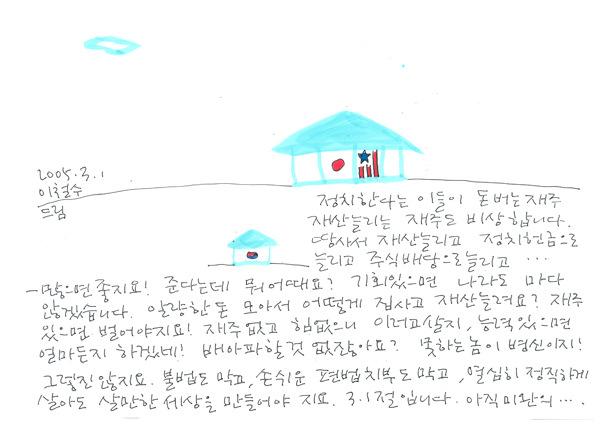 2005.3.1
이철수
드림
정치한다는 이들이 돈버는재주
재산늘리는 재주도 비상합니다.
땅사서 재산늘리고 정치헌금으로
늘리고 주식배당으로늘리고 …
─많으면좋지요! 준다는데 뭐어때요? 기회있으면 나라도 마다
않겠습니다. 알량한돈 모아서 어떻게 집사고 재산늘려요? 재주
있으면 벌어야지요! 재주없고 힘없으니 이러고살지, 능력있으면
얼마든지 하겠네! 배아파할것 없잖아요? 못하는놈이 병신이지!
그렇진 않지요. 불법도 막고, 손쉬운 편법치부도 막고, 열심히 정직하게
살아도 살만한세상을 만들어야 지요. 3.1절입니다. 아직 미완의 ….